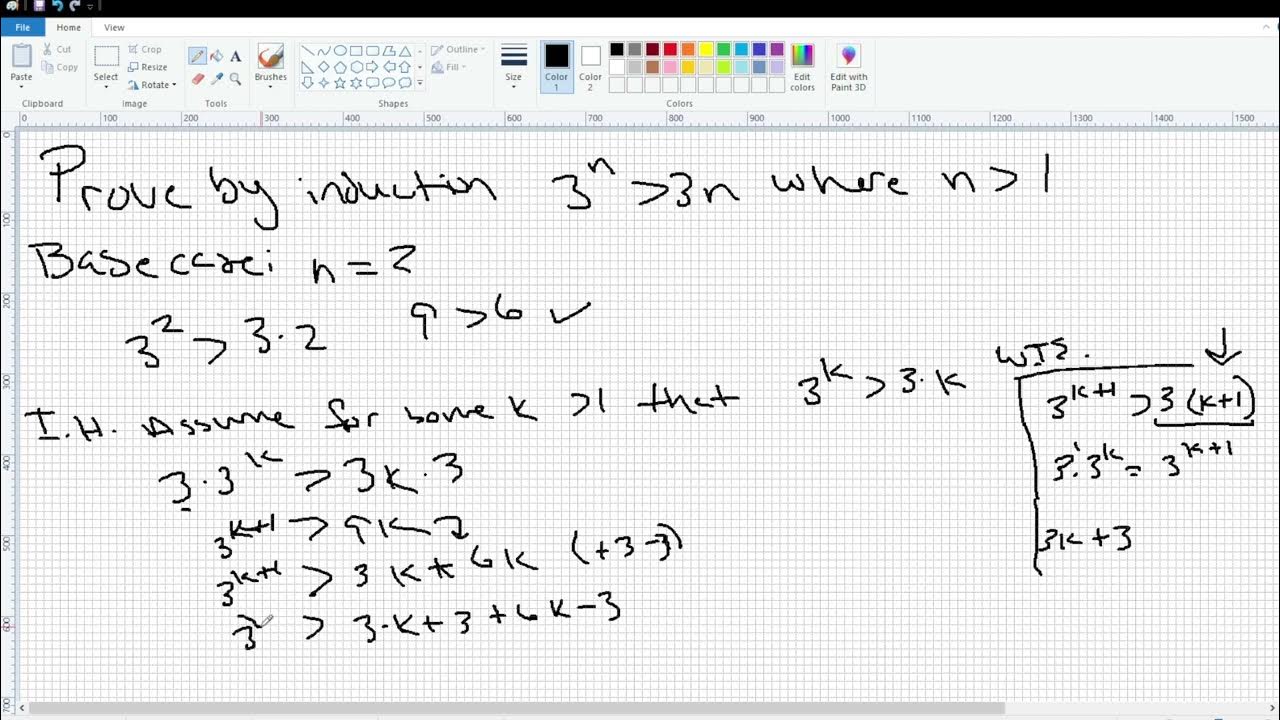 File Home View
Paste Cut Copy Clipboard
Select Crop Resize Rotate Image
Tools
Brushes
Shapes Outline Fill
Size
Color 1 Color 2 Edit colors Colors
Edit with Paint 3D
0 100 200 300 400 500 600 700 800 900 1000 1100 1200 1300 1400 1500
0 100 200 300 400 500 600 700
Prove by induction 3^n > 3n where n > 1
Base case: n = 2
3^2 > 3·2 9 > 6 ✓
I.H. Assume for some k > 1 that 3^k > 3·k
3·3^k > 3k·3
3^{k+1} > 9k
3^{k+1} > 3k + 6k (+3 -3)
3 > 3·k + 3 + 6k - 3
WTS.
3^{k+1} > 3(k+1)
3^1·3^k = 3^{k+1}
3k + 3